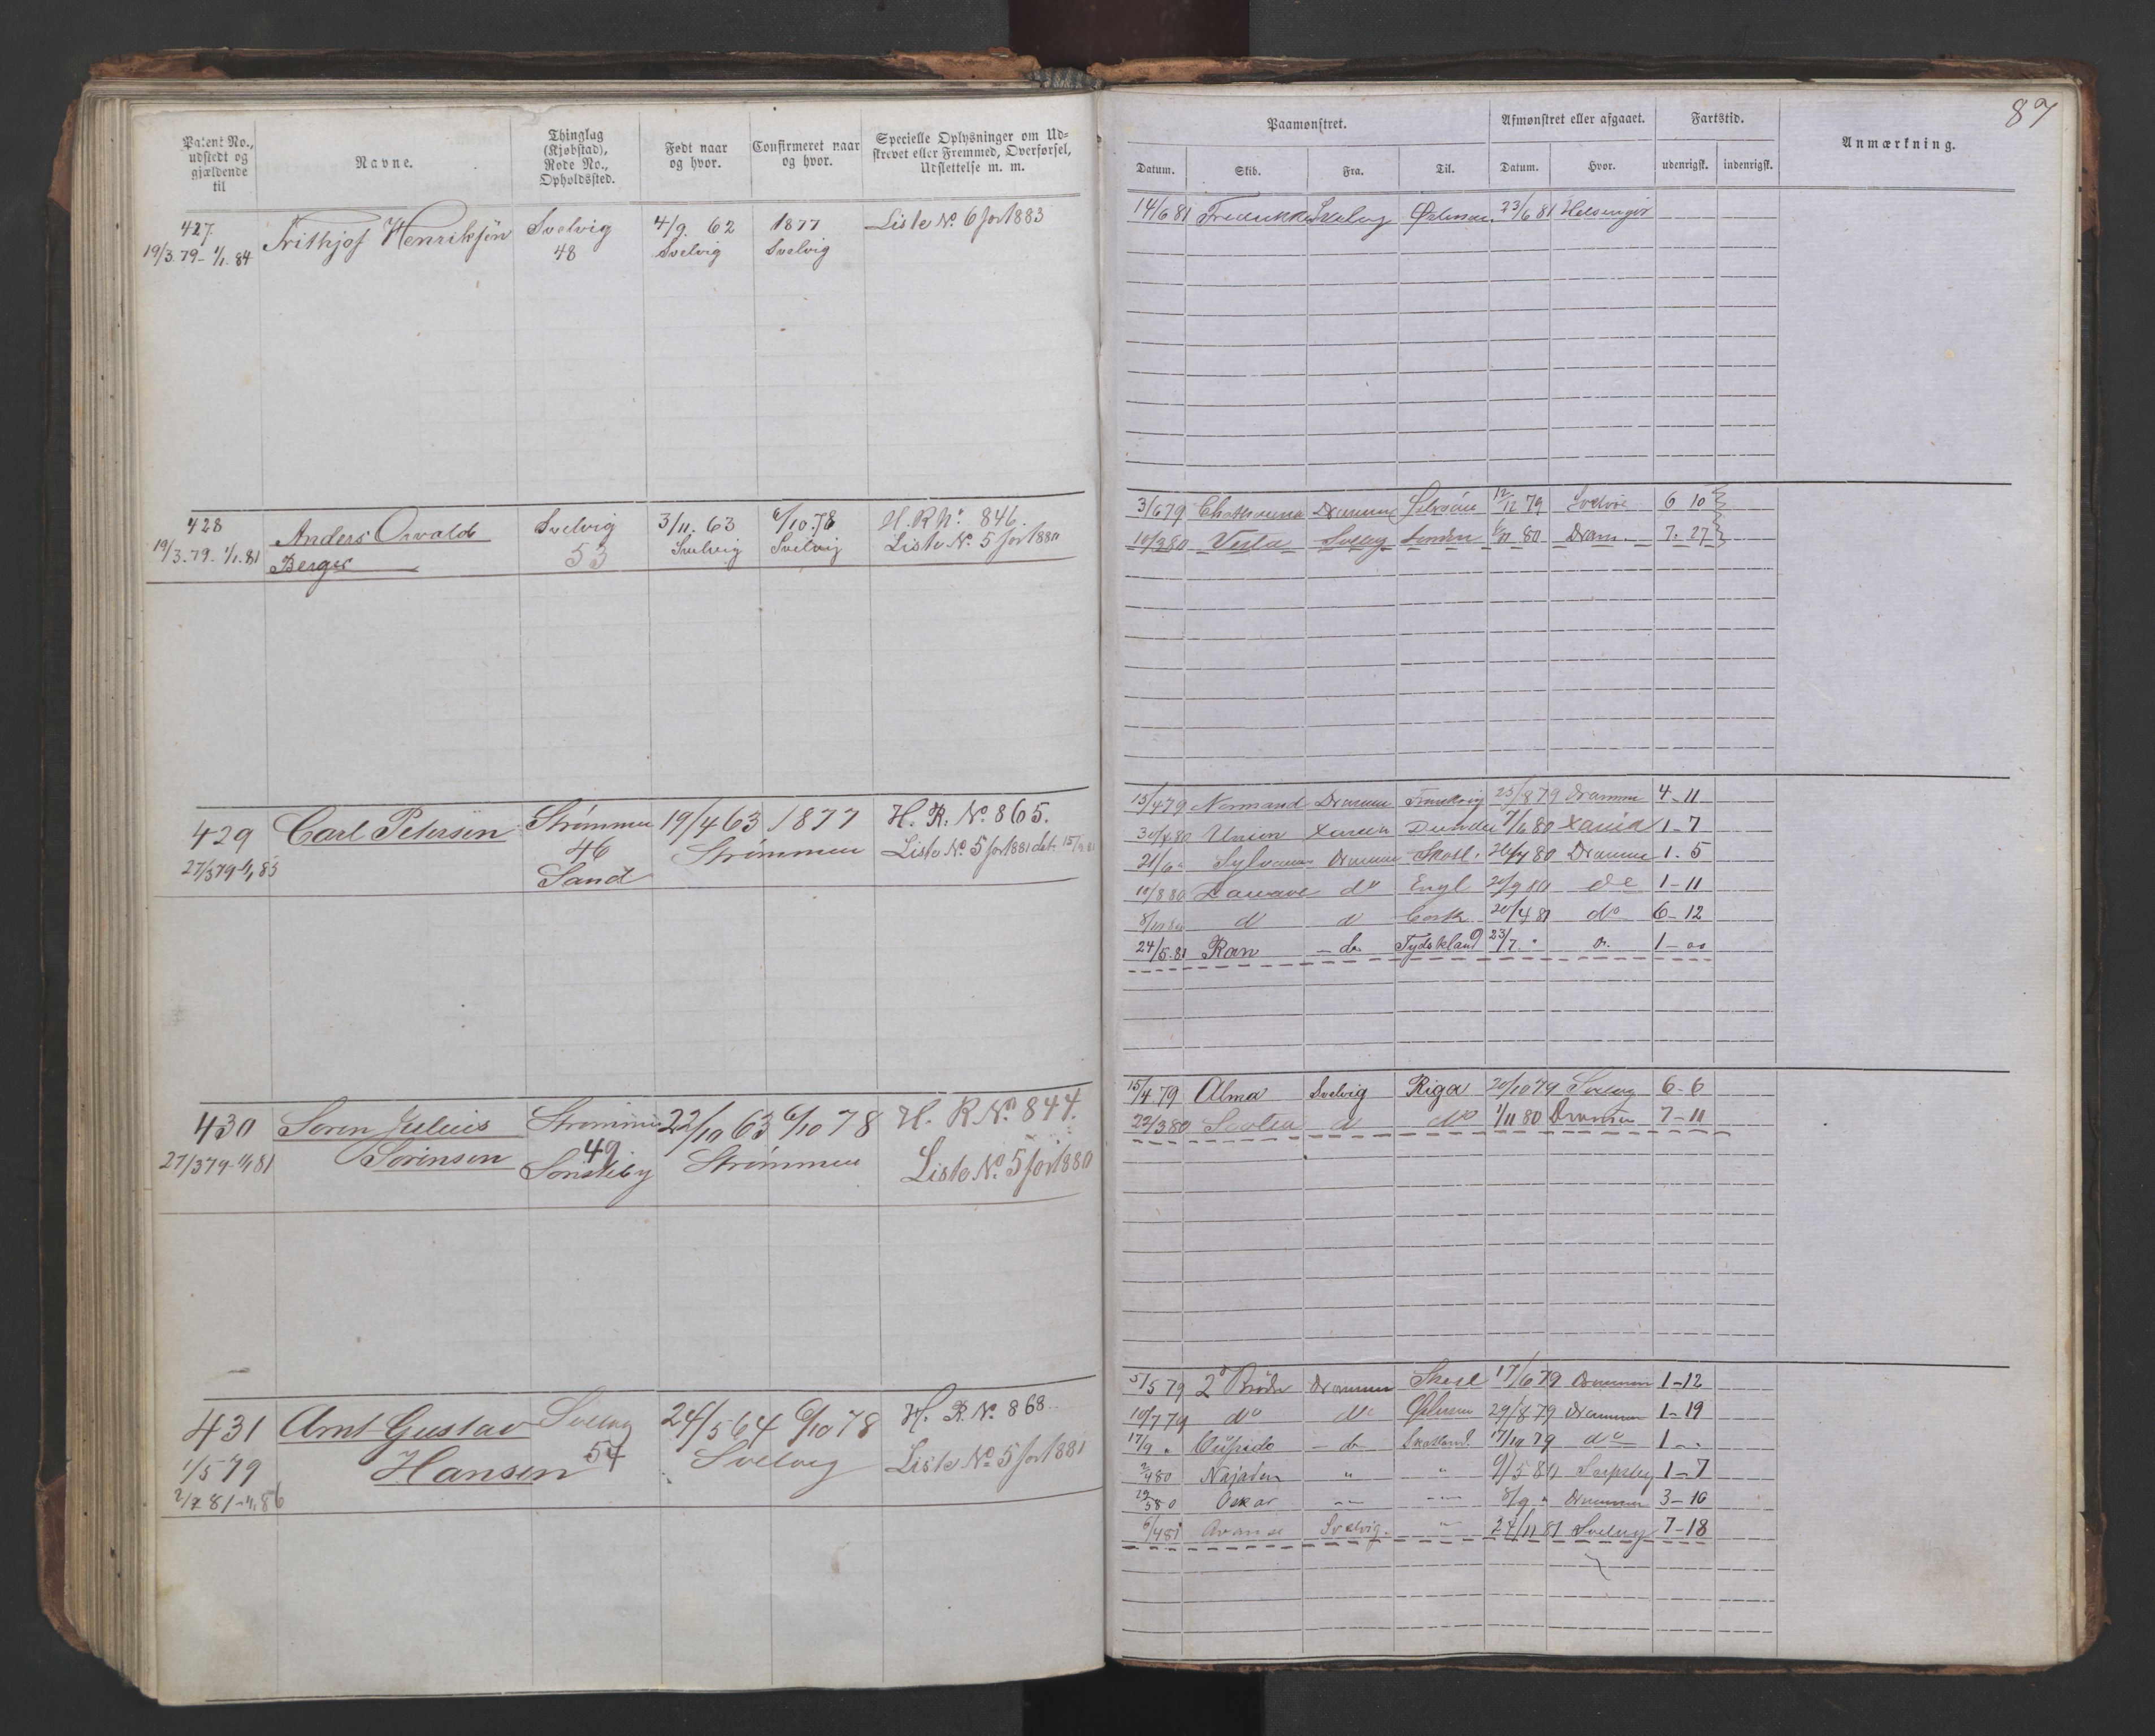 87
Patent No., udstedt og gjældende til
Navne.
Thinglag (Kjøbstad), Rode No., Opholdssted.
Født naar og hvor.
Confirmeret naar og hvor.
Specielle Oplysninger om Udskrevet eller Fremmed, Overførsel, Udslettelse m. m.
Paamønstret.
Afmønstret eller afgaaet.
Fartstid.
Anmærkning.
Datum. Skib. Fra. Til. Datum. Hvor. udenrigsk. indenrigsk.
427. Frithjof Henriksen Svelvig 4/9. 62 1877 Liste No. 6 for 1883
19/3.79- 1/1.84 48 Svelvig Svelvig
14/6 81 Fredrikke Svelvig 23/6 81 Helsingør
428 Anders Osvald Svelvig 3/11. 63 6/10.78 H.R No. 846.
19/3.79. 1/1.81 Berger 53 Svelvig Svelvig Liste No. 5 for 1880
3/6 79 Drammen 12/12 79 Svelvig 6 10
10/3 80 Svelvig London 80 Dram. 7. 27
429 Carl Petersen Strømmen 19/4 63 1877 H. R. No. 865.
27/3 79 1/1 85 46 Strømmen Liste No. 5 for 1881
Sand
15/4 79 Normand Drammen 25/8 79 Drammen 4-11
Union Dundee 7/6 80 Xania 1-7
21/6 Sylvanus Drammen Skotl. 80 Drammen 1.5
10/8 80 do Engl 20/9 80 do 1-11
d d Cork 20/4 81 do 6-12
24/5.81 Ran - do Tydskland 23/7. " 1-00
430 Søren Julius Strømmen 22/10 63 6/10 78 H. R No. 844.
27/3 79-1/1 81 Sørensen 49 Strømmen Liste No. 5 for 1880
Sønsteby
15/4 79 Alma Svelvig Riga 20/10 79 Svelvig 6-6
22/3 80 Scotia d do 1/11 80 Drammen 7-11
431 Arnt Gustav Svelvig 24/5 64 6/10 78 H. R. No. 868.
1/5 79 Hansen 54 Svelvig Liste No. 5 for 1881
2/7 81-1/1.86
5/5 79 2 Brødre Drammen Skotl 17/6 79 Drammen 1-12
10/7 79 do do 29/8 79 Drammen 1-19
17/9 " Cupido - do Skotland. 17/10 79 do 1--
2/4 80 Najaden " " 9/5 80 Sarpsbg 1-7
29/5 80 Oskar -"- -"- 8/9 " Drammen 3-10
6/4 81 Avance Svelvig. " 24/11 81 Svelvig 7-18